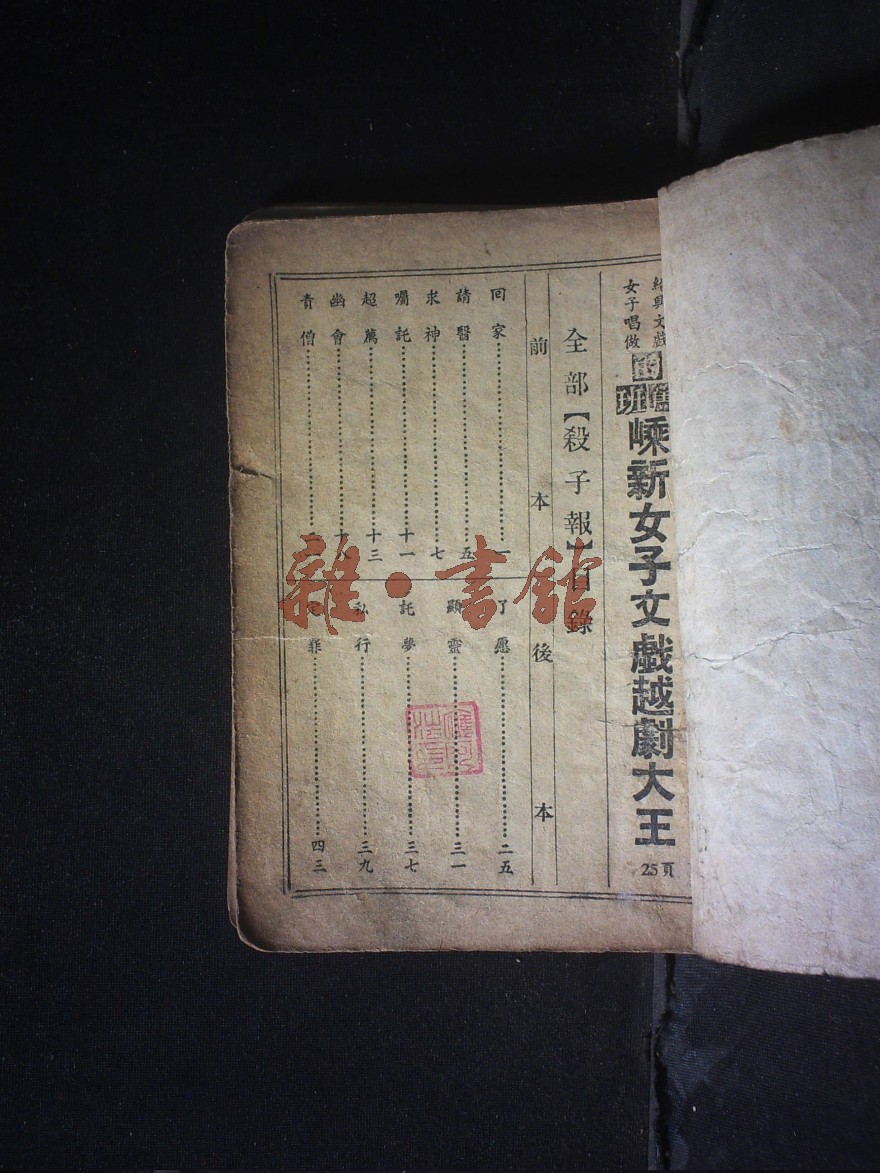 紹興文戲
女子唱做
的篤班
嵊新女子文戲越劇大王
25頁
全部【殺子報】目錄
前本
回家 一
請醫 五
求神 七
囑託 十一
超薦 十三
幽會
責僧
後本
了愿 二五
顯靈 三一
託夢 三七
私行 三九
罪 四三
雜·書館